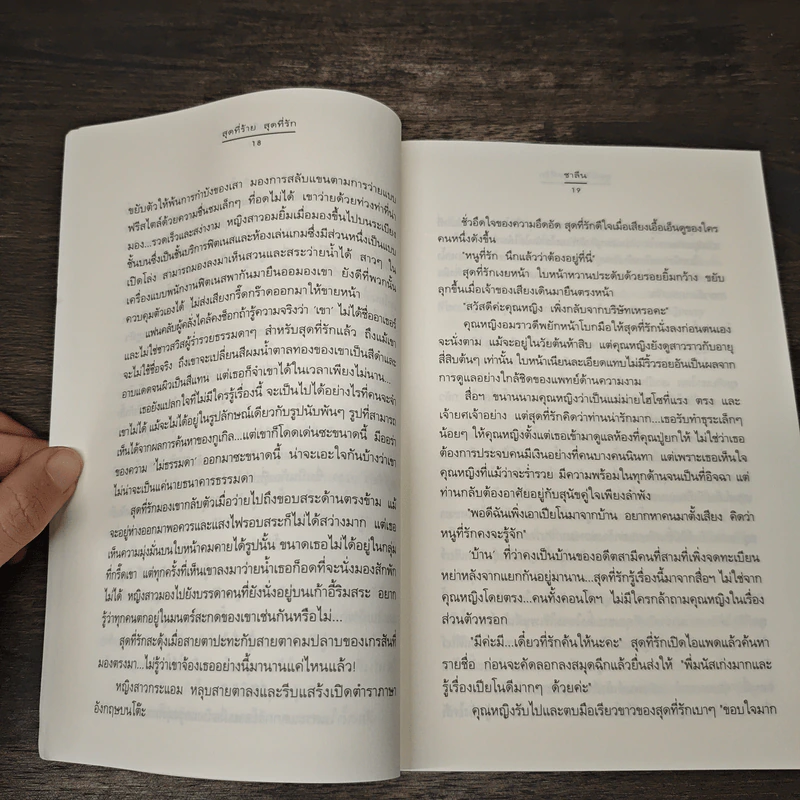 สุดที่ร้าย สุดที่รัก
18
ขยับตัวให้พ้นการกำบังของเสา มองการสลับแขนตามการว่ายแบบ
ฟรีสไตล์ด้วยความชื่นชมเล็กๆ ที่อดไม่ได้ เขาว่ายด้วยท่วงท่าที่น่า
มอง...รวดเร็วและสง่างาม หญิงสาวอมยิ้มเมื่อมองขึ้นไปบนระเบียง
ชั้นบนซึ่งเป็นชั้นบริการฟิตเนสและห้องเล่นเกมซึ่งมีส่วนหนึ่งเป็นแบบ
เปิดโล่ง สามารถมองลงมาเห็นสวนและสระว่ายน้ำได้ สาวๆ ใน
เครื่องแบบพนักงานฟิตเนสพากันมายืนออมองเขา ยังดีที่พวกนั้น
ควบคุมตัวเองได้ ไม่ส่งเสียงกรี๊ดกร๊าดออกมาให้ขายหน้า
แฟนคลับผู้คลั่งไคล้คงช็อกถ้ารู้ความจริงว่า 'เขา' ไม่ได้ชื่ออาเธอร์
และไม่ใช่ชาวสวิสผู้ร่ำรวยธรรมดาๆ สำหรับสุดที่รักแล้ว ถึงแม้เขา
จะไม่ใช้ชื่อจริง ถึงเขาจะเปลี่ยนสีผมน้ำตาลทองของเขาเป็นสีดำและ
อาบแดดจนผิวเป็นสีแทน แต่เธอก็จำเขาได้ในเวลาเพียงไม่นาน...
เธอยังแปลกใจที่ไม่มีใครรู้เรื่องนี้ จะเป็นไปได้อย่างไรที่คนจะจำ
เขาไม่ได้ แม้จะไม่ได้อยู่ในรูปลักษณ์เดียวกับรูปนับพันๆ รูปที่สามารถ
เห็นได้จากผลการค้นหาของกูเกิล...แต่เขาก็โดดเด่นซะขนาดนี้ มีออร่า
ของความ 'ไม่ธรรมดา' ออกมาซะขนาดนี้ น่าจะเอะใจกันบ้างว่าเขา
ไม่น่าจะเป็นแค่นายธนาคารธรรมดา
สุดที่รักมองเขากลับตัวเมื่อว่ายไปถึงขอบสระด้านตรงข้าม แม้
จะอยู่ห่างออกมาพอควรและแสงไฟรอบสระก็ไม่ได้สว่างมาก แต่เธอ
เห็นความมุ่งมั่นบนใบหน้าคมคายได้รูปนั้น ขนาดเธอไม่ได้อยู่ในกลุ่ม
ที่กรี๊ดเขา แต่ทุกครั้งที่เห็นเขาลงมาว่ายน้ำเธอก็อดที่จะนั่งมองสักพัก
ไม่ได้ หญิงสาวมองไปยังบรรดาคนที่ยังนั่งอยู่บนเก้าอี้ริมสระ อยาก
รู้ว่าทุกคนตกอยู่ในมนตร์สะกดของเขาเช่นกันหรือไม่...
สุดที่รักสะดุ้งเมื่อสายตาปะทะกับสายตาคมปลาบของเกรสันที่
มองตรงมา...ไม่รู้ว่าเขาจ้องเธออย่างนี้มานานแค่ไหนแล้ว!
หญิงสาวกระแอม หลุบสายตาลงและรีบแสร้งเปิดตำราภาษา
อังกฤษบนโต๊ะ
ชาลีน
19
ชั่วอึดใจของความอึดอัด สุดที่รักดีใจเมื่อเสียงเอื้อเอ็นดูของใคร
คนหนึ่งดังขึ้น
"หนูที่รัก นึกแล้วว่าต้องอยู่ที่นี่"
สุดที่รักเงยหน้า ใบหน้าหวานประดับด้วยรอยยิ้มกว้าง ขยับ
ลุกขึ้นเมื่อเจ้าของเสียงเดินมายืนตรงหน้า
"สวัสดีค่ะคุณหญิง เพิ่งกลับจากบริษัทเหรอคะ"
คุณหญิงอมราวดีพยักหน้าโบกมือให้สุดที่รักนั่งลงก่อนตนเอง
จะนั่งตาม แม้จะอยู่ในวัยต้นห้าสิบ แต่คุณหญิงยังดูสาวราวกับอายุ
สี่สิบต้นๆ เท่านั้น ใบหน้าเนียนละเอียดแทบไม่มีริ้วรอยอันเป็นผลจาก
การดูแลอย่างใกล้ชิดของแพทย์ด้านความงาม
สื่อฯ ขนานนามคุณหญิงว่าเป็นแม่ม่ายไฮโซที่แรง ตรง และ
เจ้ายศเจ้าอย่าง แต่สุดที่รักคิดว่าท่านน่ารักมาก...เธอรับทำธุระเล็กๆ
น้อยๆ ให้คุณหญิงตั้งแต่เธอเข้ามาดูแลห้องที่คุณปู่ยกให้ ไม่ใช่ว่าเธอ
ต้องการประจบคนมีเงินอย่างที่คนบางคนนินทา แต่เพราะเธอเห็นใจ
คุณหญิงที่แม้ว่าจะร่ำรวย มีความพร้อมในทุกด้านจนเป็นที่อิจฉา แต่
ท่านกลับต้องอาศัยอยู่กับสุนัขคู่ใจเพียงลำพัง
"พอดีฉันเพิ่งเอาเปียโนมาจากบ้าน อยากหาคนมาตั้งเสียง คิดว่า
หนูที่รักคงจะรู้จัก"
'บ้าน' ที่ว่าคงเป็นบ้านของอดีตสามีคนที่สามที่เพิ่งจดทะเบียน
หย่าหลังจากแยกกันอยู่มานาน...สุดที่รักรู้เรื่องนี้มาจากสื่อฯ ไม่ใช่จาก
คุณหญิงโดยตรง...คนทั้งคอนโดฯ ไม่มีใครกล้าถามคุณหญิงในเรื่อง
ส่วนตัวหรอก
"มีค่ะมี...เดี๋ยวที่รักค้นให้นะคะ" สุดที่รักเปิดไอแพดแล้วค้นหา
รายชื่อ ก่อนจะคัดลอกลงสมุดฉีกแล้วยื่นส่งให้ "พี่มนัสเก่งมากและ
รู้เรื่องเปียโนดีมากๆ ด้วยค่ะ"
คุณหญิงรับไปและตบมือเรียวขาวของสุดที่รักเบาๆ "ขอบใจมาก